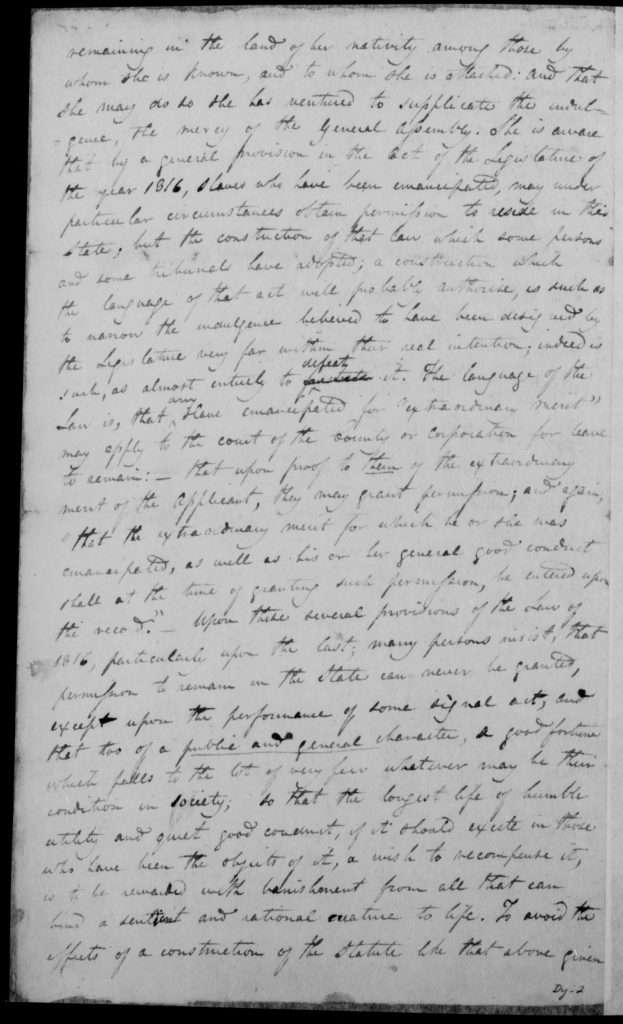 remaining in the land of her nativity among those by
whom she is known, and to whom she is attached: and that
she may do so she has ventured to supplicate the indul-
-gence, the mercy of the General Assembly. She is aware
that by a general provision in the act of the Legislature of
the year 1816, slaves who have been emancipated, may under
particular circumstances obtain permission to reside in this
State; but the construction of that law which some persons
and some tribunals have adopted; a construction which
the language of that act will probably authorise, is such as
to narrow the indulgence believed to have been designed by
the Legislature very far within their real intention; indeed is
such, as almost entirely to defeat it. The language of the
Law is, that any slave emancipated for "extraordinary merit"
may apply to the court of the county or corporation for leave
to remain:— that upon proof to them of the extraordinary
merit of the applicant, they may grant permission; and again,
"that the extraordinary merit for which he or she was
emancipated, as well as his or her general good conduct
shall at the time of granting such permission, be entered upon
the record."— Upon these several provisions of the Law of
1816, particularly upon the last; many persons insist, that
permission to remain in the State can never be granted,
except upon the performance of some signal act, and
that too of a public and general character, a good fortune
which falls to the lot of very few whatever may be their
condition in society; so that the longest life of humble
utility and quiet good conduct, if it should excite in those
who have been the objects of it, a wish to recompense it,
is to be rewarded with banishment from all that can
bind a sentient and rational creature to life. To avoid the
effects of a construction of the statute like that above given
Dy-2